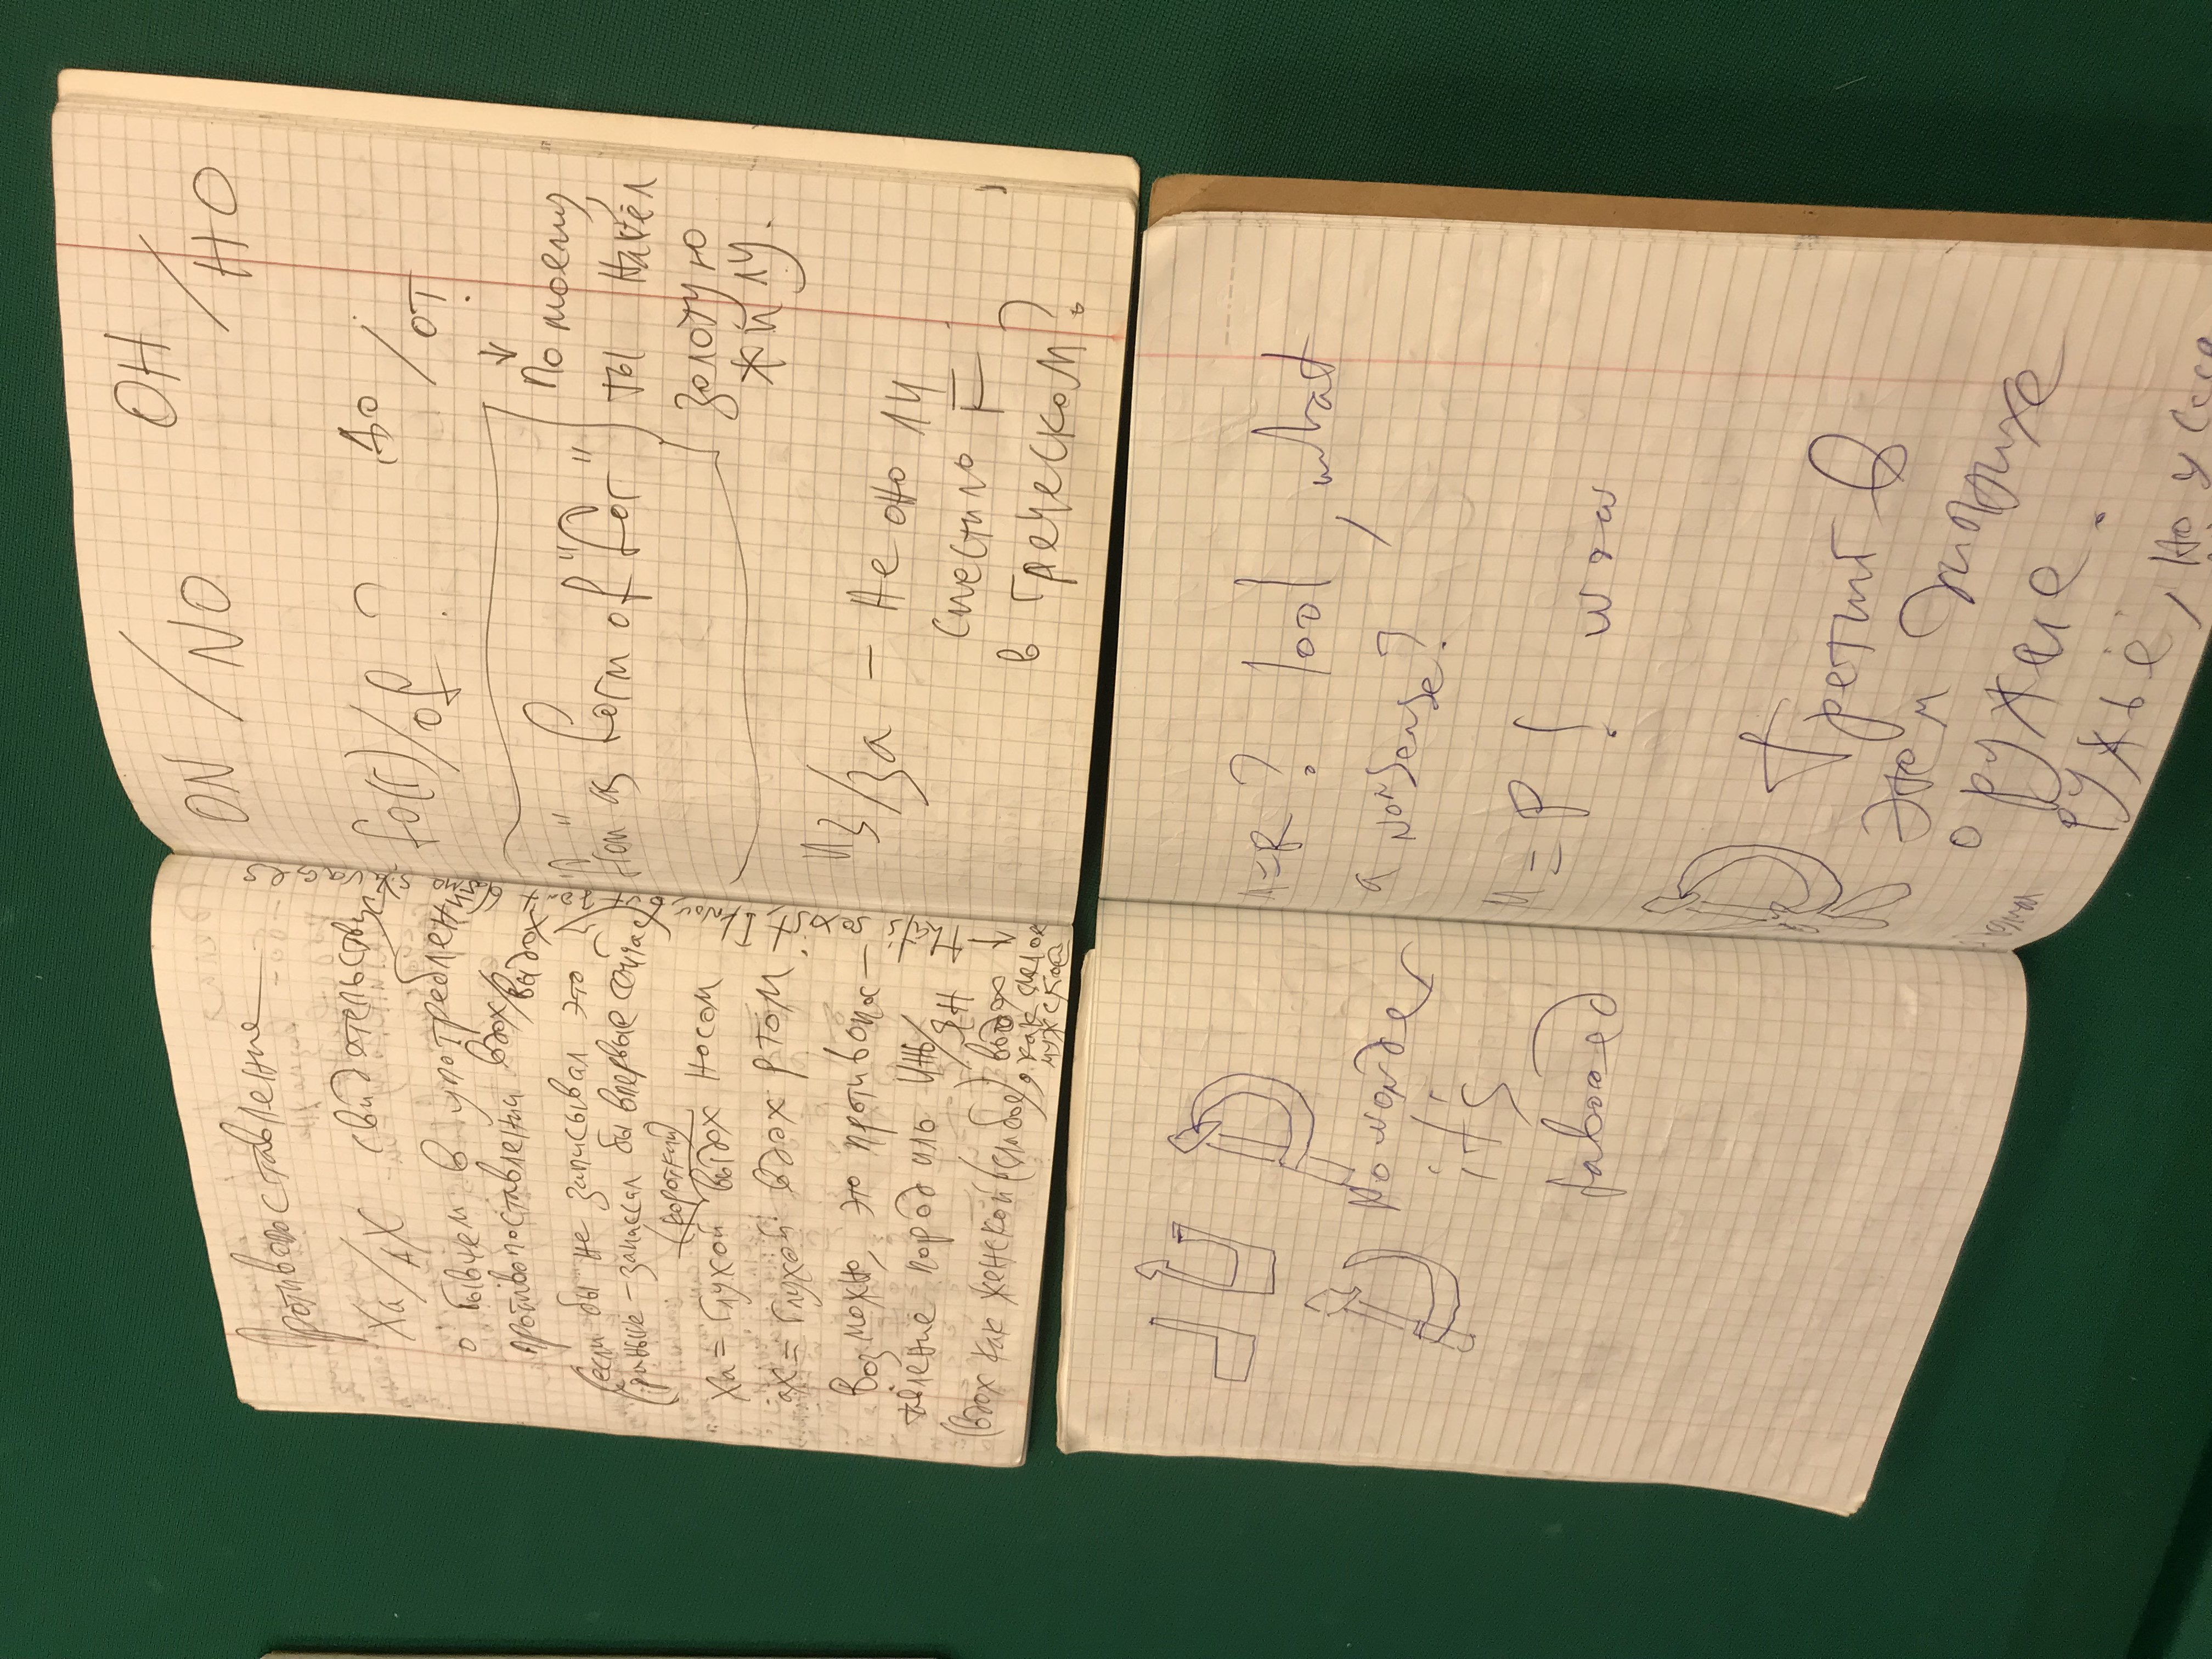 Противопоставление
Ха/АХ свидетельствует
о бывшем в употреблении
противопоставлении вдох/выдох
(если бы не записывал это
раньше – записал бы впервые сейчас)
(короткий)
Ха = глухой выдох носом
ах = глухой вдох ртом
возможно, это противопос–
тавление породило ИНЬ/ЯН
(вдох как женской (слабое), выдох
как
мужской
← that's sexist, I know, but don't blame savages
ON / NO OH / HO
fo(r)/of ? до / от
!
↓
"from" as form of "for"
По моему,
ты нашёл
золотую
жилу.
Из/за – не оно ли
сместило F
в греческом?
No wonder
it's
tabooed
=R ? lool, what
a nonsense?
M = P ! wow
Третий в
этом
оружие.
ружьё, но у